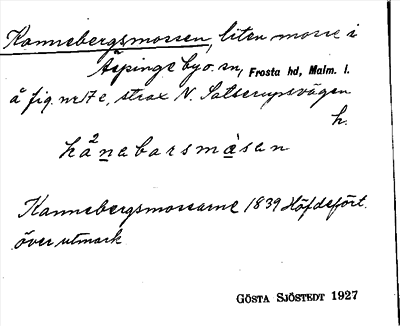 Kannebergsmossen, liten mosse i
Äspinge by o. sn, Frosta hd, Malm. l.
å fig. nr 17 e, strax N. Satserupsvägen
h.
hå²nabarsmæ̀san
Kannebergsmossarne 1839 Höfdefört.
över utmark
GÖSTA SJÖSTEDT 1927